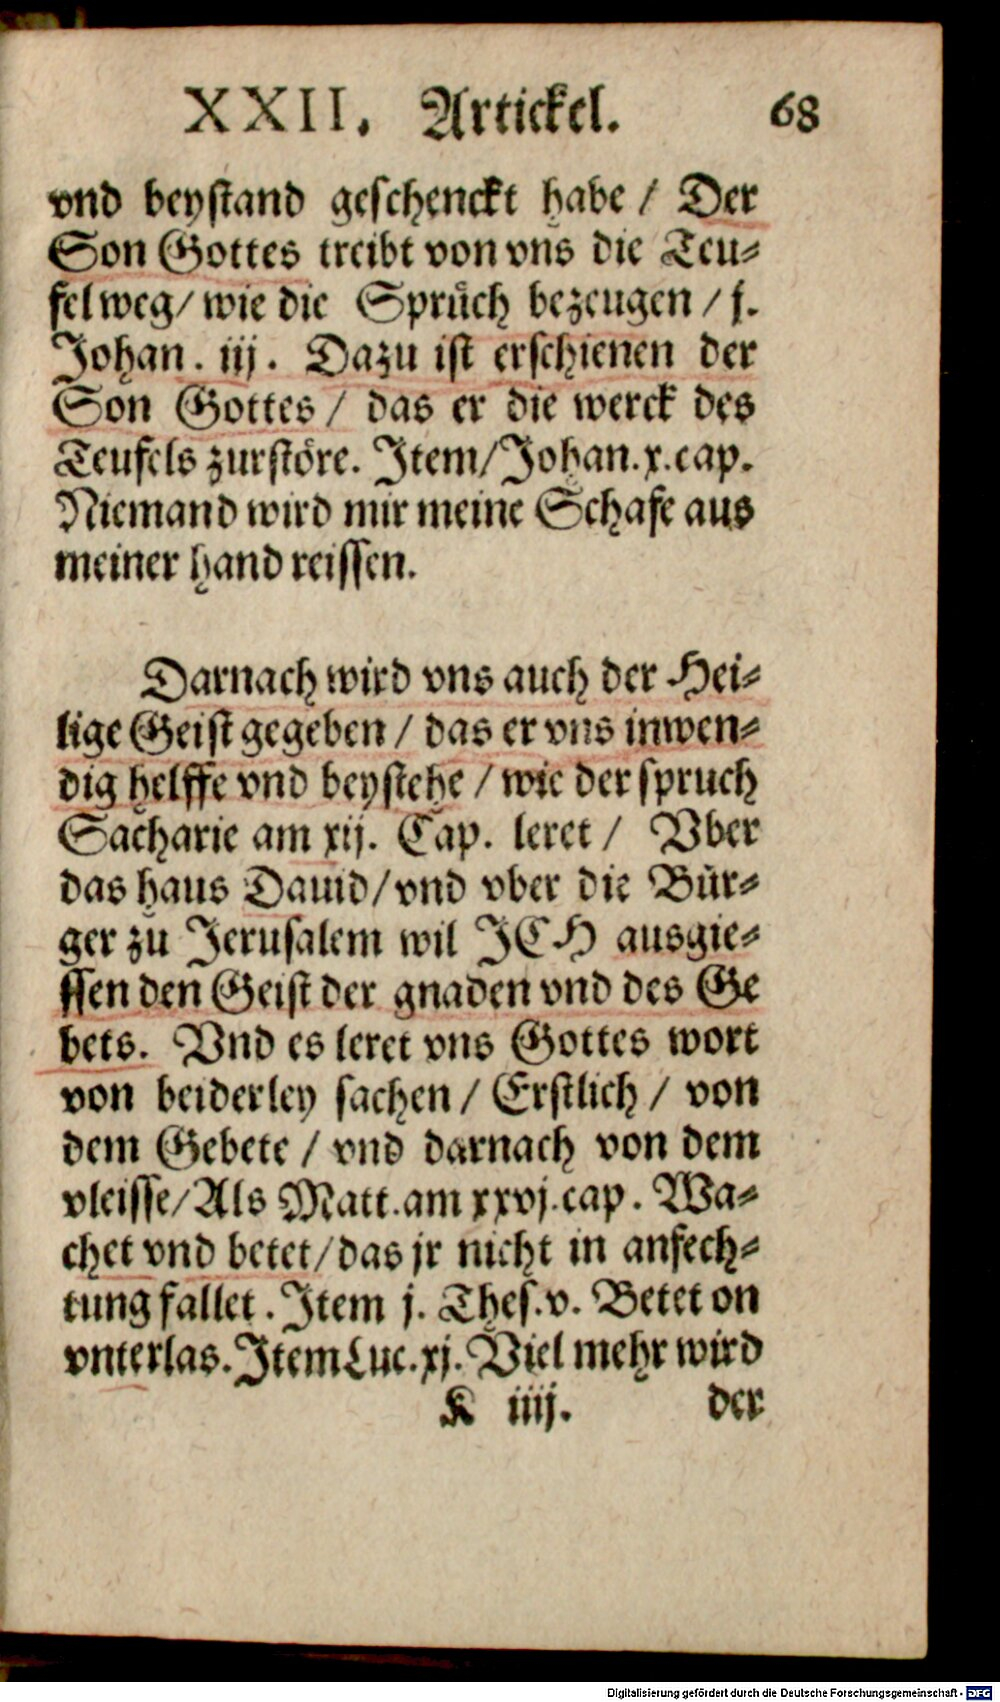 XXII. Artickel. 68
vnd beystand geschenckt habe / Der
Son Gottes treibt von vns die Teu-
fel weg / wie die Sprüch bezeugen / j.
Johan. iij. Dazu ist erschienen der
Son Gottes / das er die werck des
Teufels zurstöre. Item / Johan. x. cap.
Niemand wird mir meine Schafe aus
meiner hand reissen.
Darnach wird vns auch der Hei-
lige Geist gegeben / das er vns inwen-
dig helffe vnd beystehe / wie der spruch
Sacharie am xij. Cap. leret / Vber
das haus Dauid / vnd vber die Bür-
ger zu Jerusalem wil JCH ausgie-
ssen den Geist der gnaden vnd des Ge
bets. Vnd es leret vns Gottes wort
von beiderley sachen / Erstlich / von
dem Gebete / vnd darnach von dem
vleisse / Als Matt. am xxvj. cap. Wa-
chet vnd betet / das jr nicht in anfech-
tung fallet. Item j. Thes. v. Betet on
vnterlas. Item Luc. xj. Viel mehr wird
K iiij. der
Digitalisierung gefördert durch die Deutsche Forschungsgemeinschaft - DFG